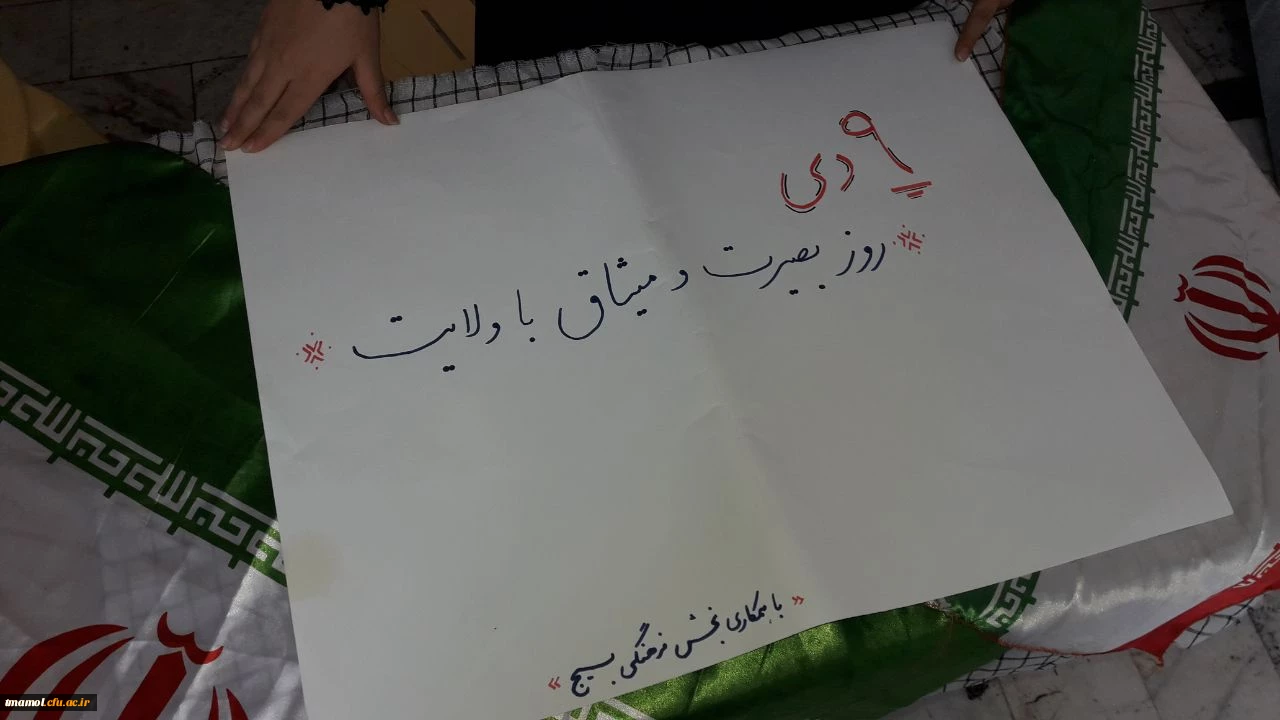 ۹ دی
※ روز بصیرت و میثاق با ولایت ※
« با همکاری بخش فرهنگی بسیج »
tmamol.cfu.ac.ir